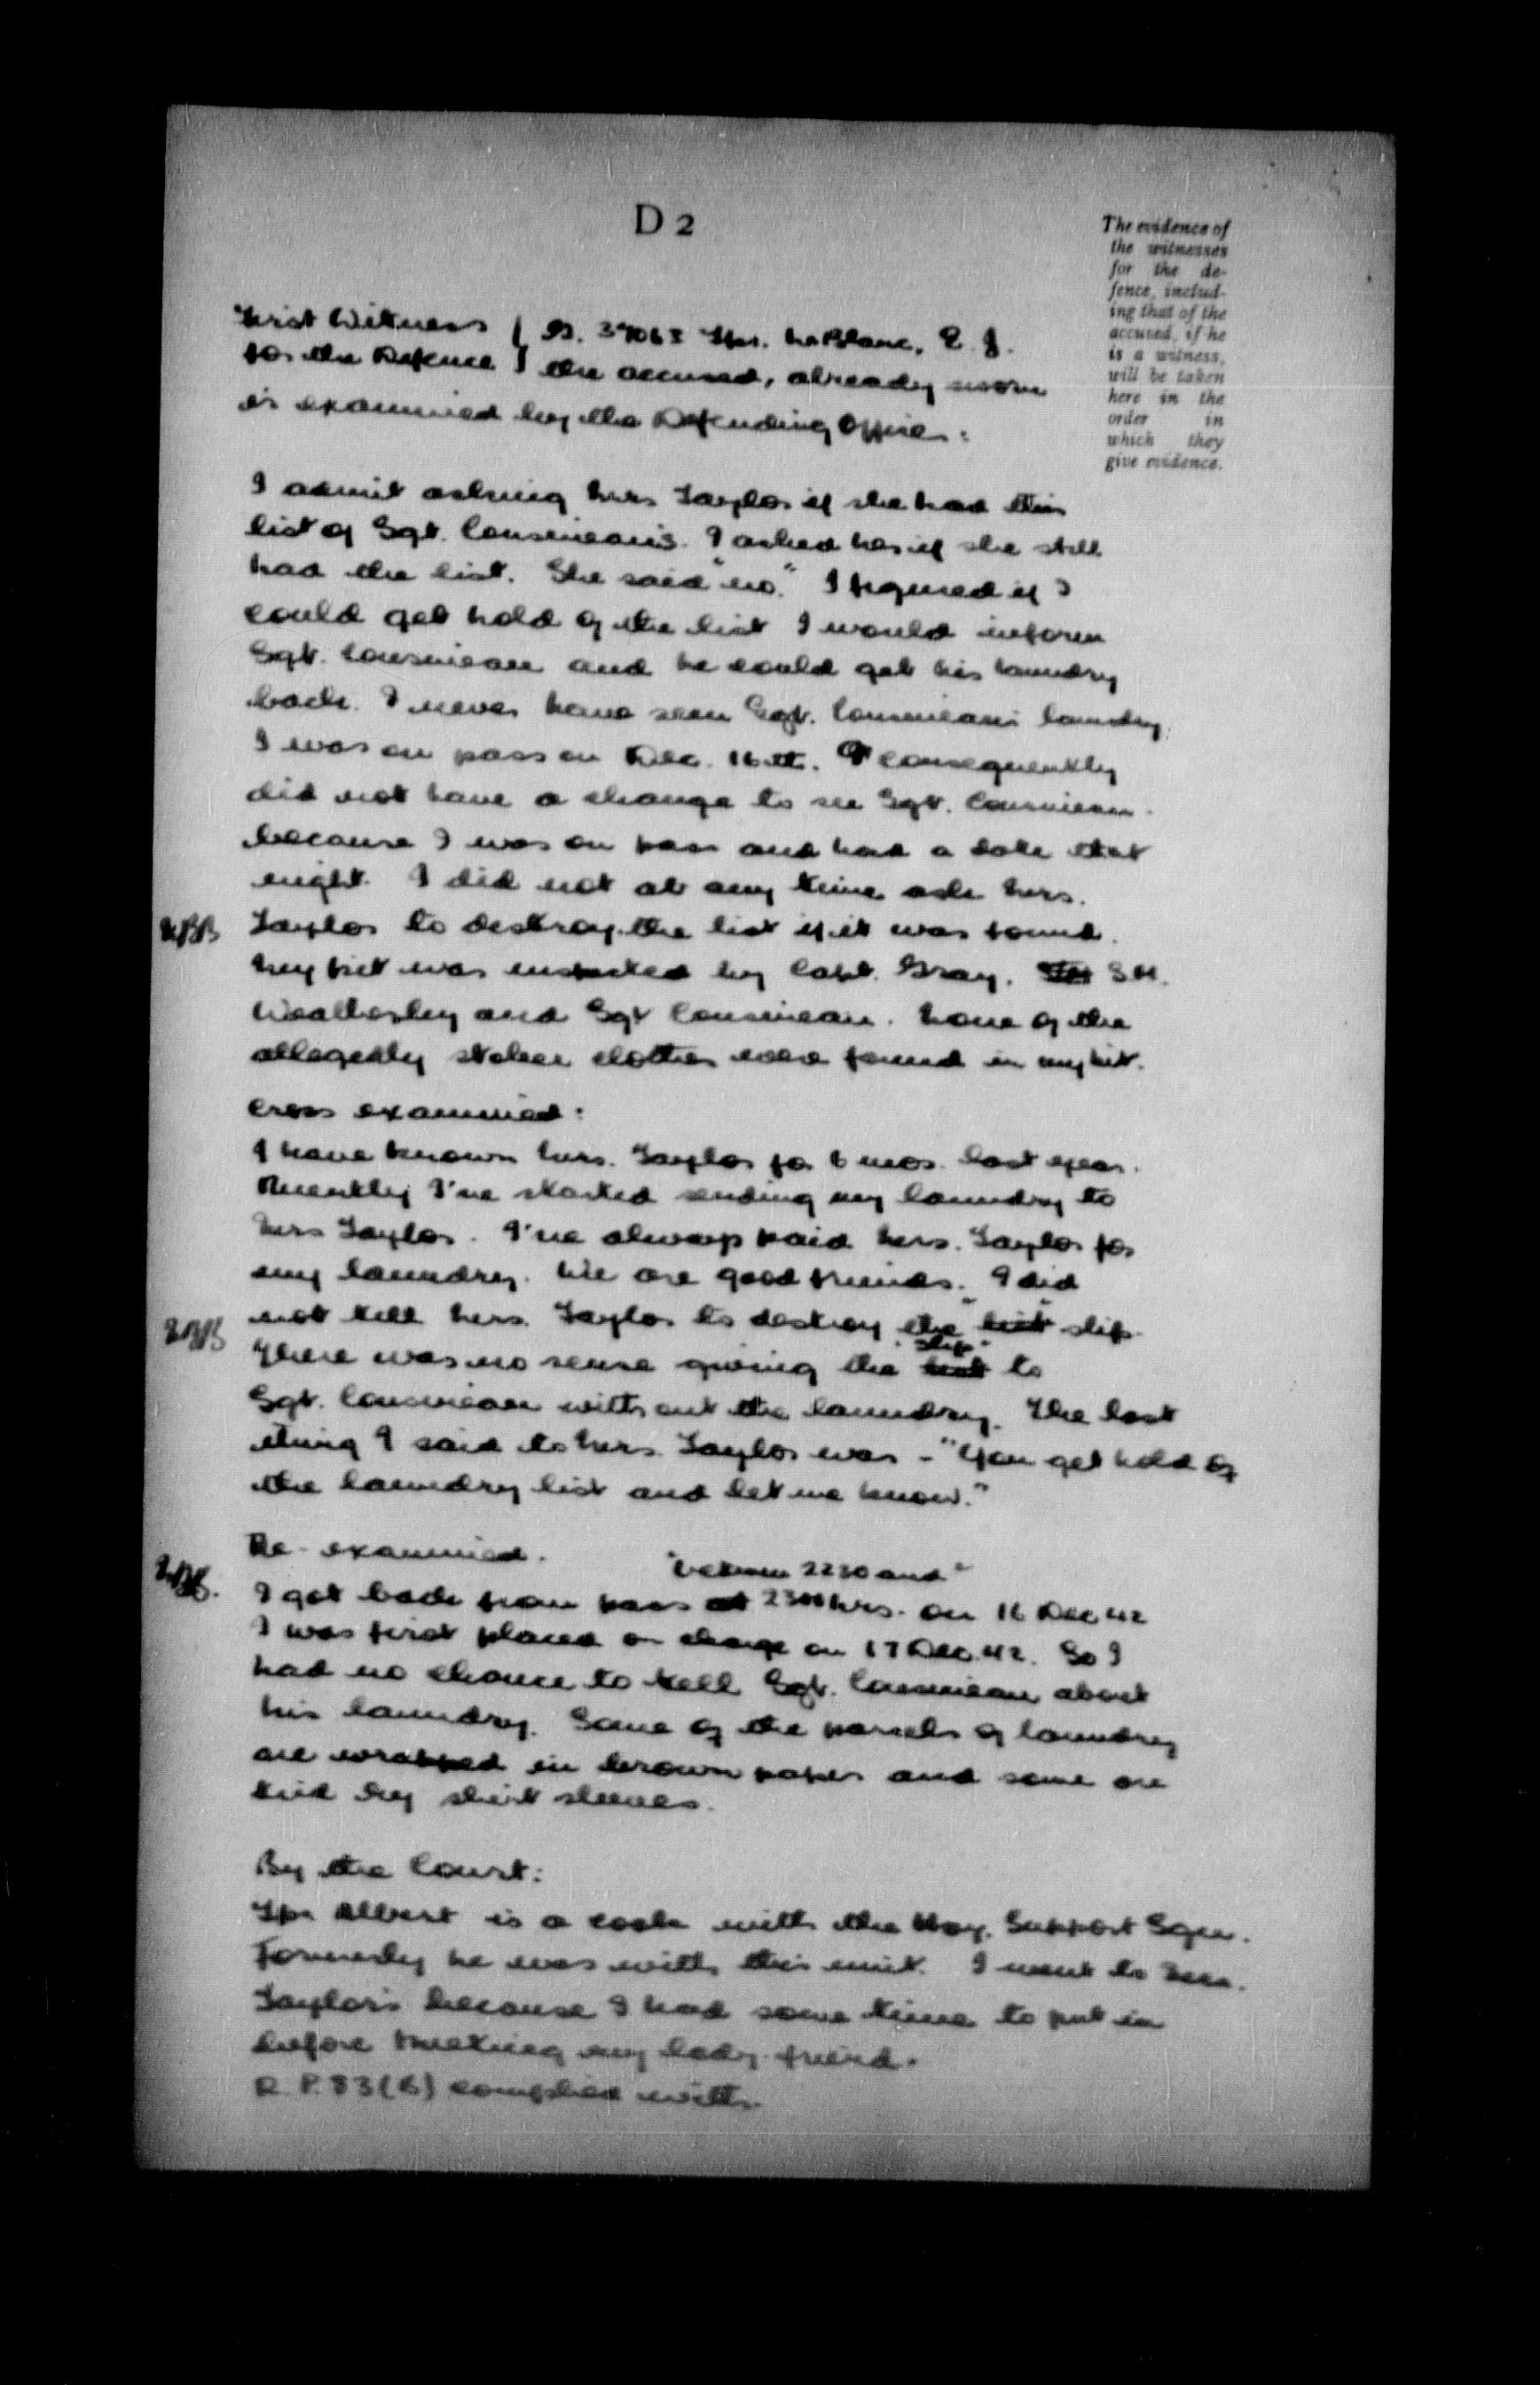 D 2
The evidence of
the witnesses
for the de-
fence, includ-
ing that of the
accused, if he
is a witness,
will be taken
here in the
order in
which they
give evidence.
First Witness
for the Defence
Tpr. LeBlanc, E. J.
the accused, already sworn
is examined by the Defending Officer:
I admit asking Mrs Taylor if she had this
list of Sgt. Cousineau's. I asked her if she still
had the list. She said "no." I figured if I
could get hold of the list I would inform
Sgt. Cousineau and he could get his laundry
back. I never have seen Sgt. Cousineau's laundry.
I was on pass on Dec. 16th. I consequently
did not have a change to see Sgt. Cousineau
because I was on pass and had a date that
night. I did not at any time ask Mrs.
Taylor to destroy the list if it was found.
My kit was inspected by Capt. Gray, S.M.
and Sgt Cousineau. None of the
allegedly stolen clothes were found in my kit.
Cross examined:
I have known Mrs. Taylor for 6 mos. last year.
Recently I've started sending my laundry to
Mrs Taylor. I've always paid Mrs. Taylor for
my laundry. We are good friends. I did
not tell Mrs. Taylor to destroy "the list" slip.
There was no sense giving the list "slip" to
Sgt. Cousineau without the laundry. The last
thing I said to Mrs Taylor was - "You get hold of
the laundry list and let me know."
Re-examined.
"between 2230 and"
I got back from pass at 2300 hrs. on 16 Dec 42
I was first placed on charge on 17 Dec 42. So I
had no chance to tell Sgt. Cousineau about
his laundry. Some of the parcels of laundry
are wrapped in brown paper and some are
tied by shirt sleeves.
By the Court:
Tpr Albert is a cook with the Support Sqn.
Formerly he was with this unit. I went to Mrs.
Taylor's because I had some time to put in
before meeting my lady friend.
R.P. 83(B) complied with.